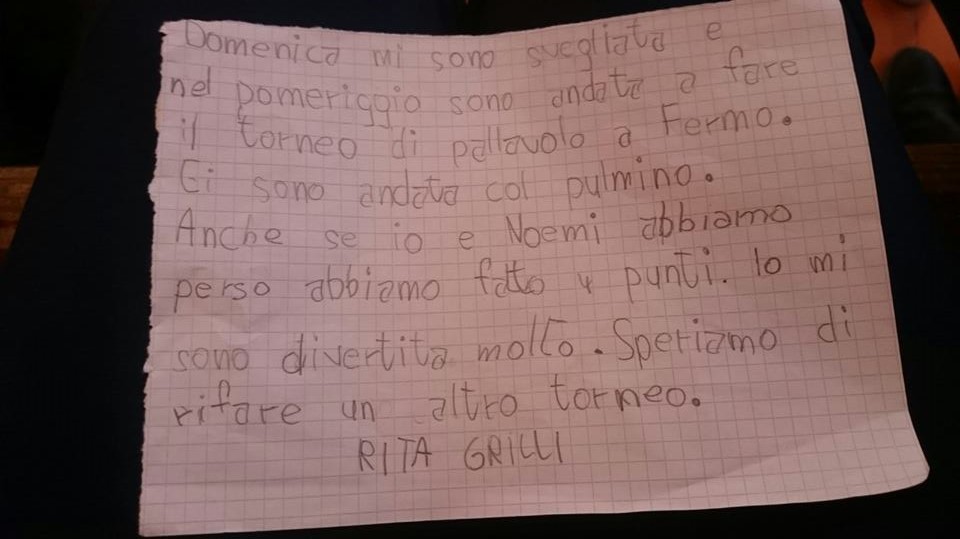 Domenica mi sono svegliata e
nel pomeriggio sono andata a fare
il torneo di pallavolo a Fermo.
Ci sono andata col pulmino.
Anche se io e Noemi abbiamo
perso abbiamo fatto 4 punti. Io mi
sono divertita molto. Speriamo di
rifare un altro torneo.
RITA GRILLI